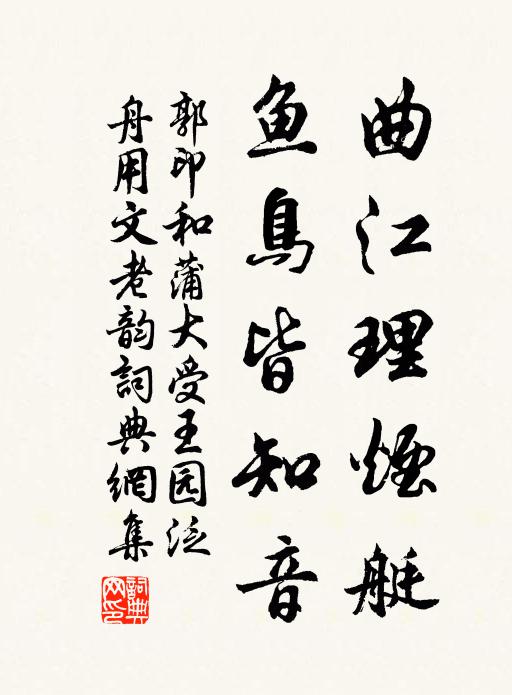 曲江理煙艇
鱼鳥皆知音
郭印和蒲大受王园泛
舟用文老韵詞典網集
詞典网印